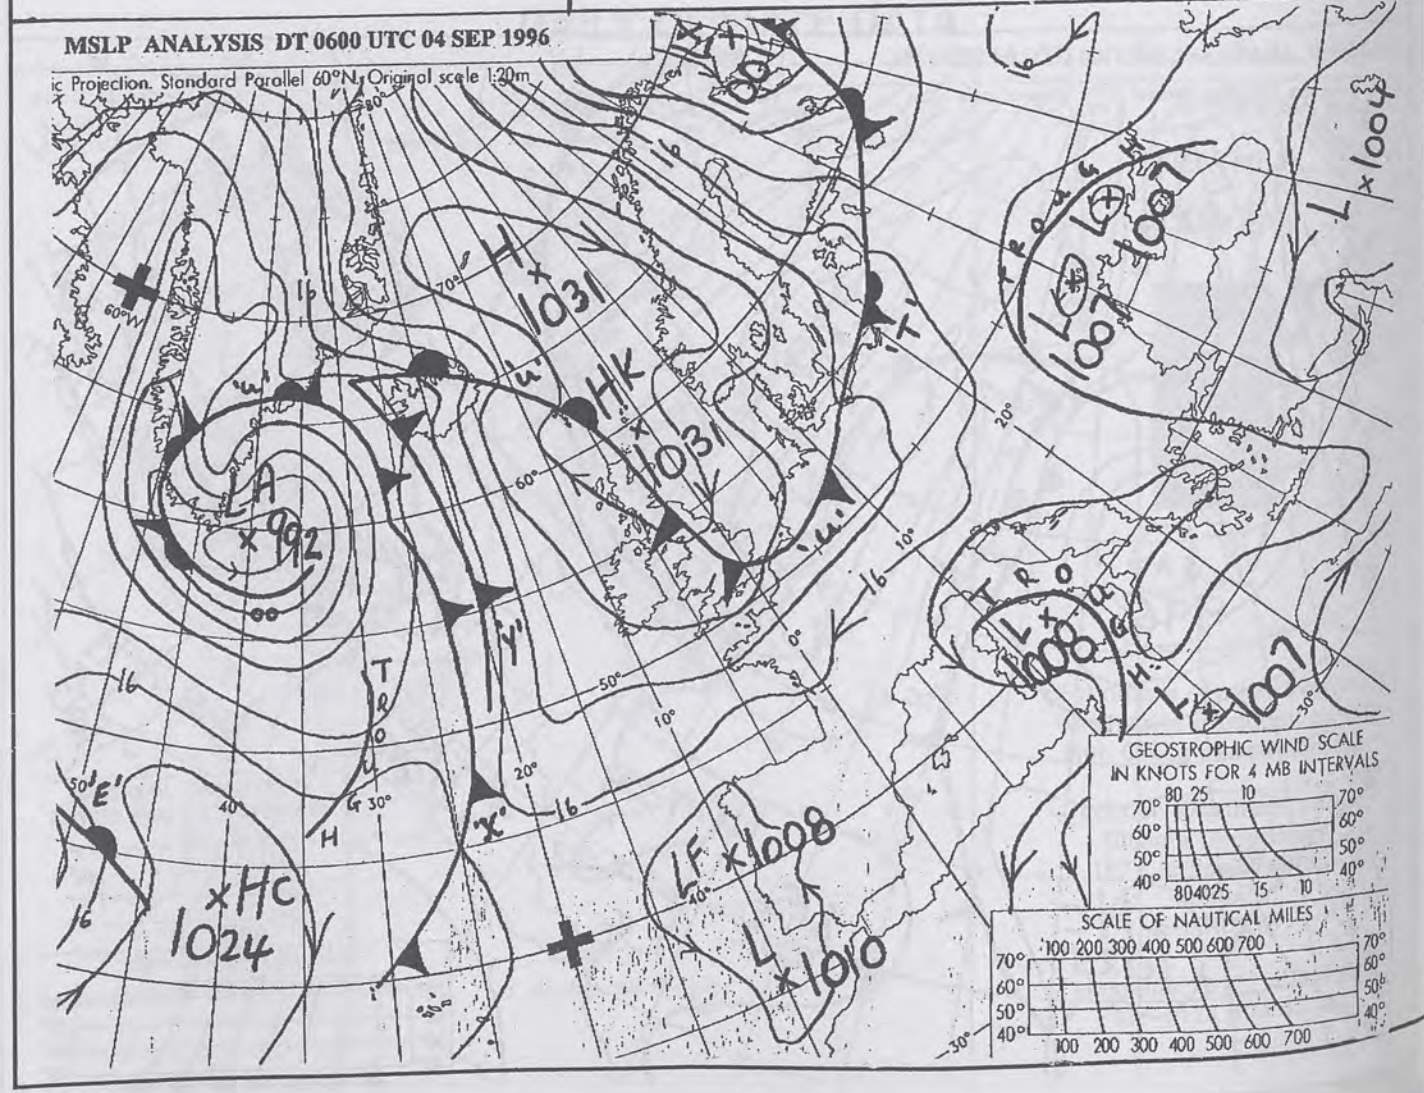 MSLP ANALYSIS DT 0600 UTC 04 SEP 1996
ic Projection. Standard Parallel 60°N. Original scale 1:20m
80°
16
16
16
L
x1004
TROUGH
L
1007
L
1007
H
x
1031
70°
60°W
16
'T'
'U'
'U'
HK
x
1031
20°
60°
LA
x992
'U'
10°
16
00
TROUGH
'Y'
TROUGH
L x
1008
0°
50°
10°
L
1007
30°
16
TROUGH
50°
'E'
40°
30°
20°
'X'
16
16
xHC
1024
LF x1008
40°
L
x1010
30°
GEOSTROPHIC WIND SCALE
IN KNOTS FOR 4 MB INTERVALS
80 25 10
70° 70°
60° 60°
50° 50°
40° 40°
80 40 25 15 10
SCALE OF NAUTICAL MILES
100 200 300 400 500 600 700
70° 70°
60° 60°
50° 50°
40° 40°
100 200 300 400 500 600 700